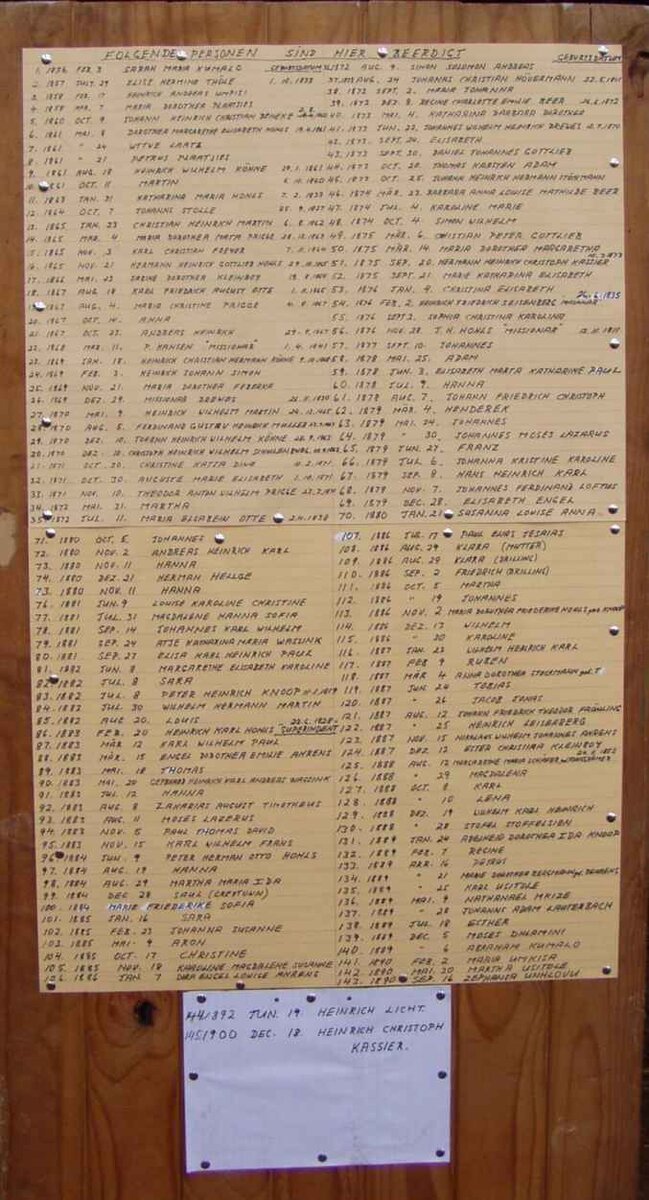 FOLGENDE PERSONEN SIND HIER BEERDIGT
GEBURTSDATUM
1. 1856 FEB. 3 SARAH MARIA KUMALO
2. 1857 JULI. 29 ELISE HERMINE THÖLE 1. 10. 1838
3. 1858 FEB. 17 HEINRICH ANDREAS UMPISI
4. 1858 APR. 7 MARIA DOROTHEA PLAATJIES
5. 1860 OCT. 9 JOHANN HEINRICH CHRISTIAN BENEKE
6. 1861 MAI. 8 DOROTHEA MARGARETHE ELISABETH HOHLS
7. 1861 " 24 WITWE LAATZ
8. 1861 " 21 PETRUS PLAATJIES
9. 1861 AUG. 18 HEINRICH WILHELM KÖHNE
10. 1861 OCT. 11 MARTIN
11. 1863 JAN. 31 KATHARINA MARIA HOHLS
12. 1864 OCT. 7 JOHANNS STOLLE
13. 1865 JAN. 23 CHRISTIAN HEINRICH MARTIN
14. 1865 MAR. 4 MARIA DOROTHEA PRIGGE
15. 1865 NOV. 3 KARL CHRISTIAN
16. 1865 NOV. 21 HERMANN HEINRICH GOTTLIEB HOHLS
17. 1866 MAI. 23 DOROTHEA KLEINBOY
18. 1867 AUG. 18 KARL FRIEDRICH AUGUST OTTE
1867 AUG. 4. MARIA CHRISTINE PRIGGE
20. 1867 OCT. 14. ANNA
21. 1867 OCT. 23. ANDREAS HEINRICH
22. 1868 MAR. 11. P. HANSEN "MISSIONAR"
23. 1869 JAN. 18. HEINRICH CHRISTIAN HERMANN KÖHNE
24. 1869 FEB. 3. HEINRICH JOHANN SIMON
25. 1869 NOV. 21. MARIA DOROTHEA
26. 1869 DEZ. 29. MISSIONAR DREWES
27. 1870 MAI. 9. HEINRICH WILHELM MARTIN
28. 1870 AUG. 5. FERDINAND GUSTAV HEINRICH MÜLLER
29. 1870 DEZ. 10. JOHANN HEINRICH WILHELM KÖHNE
30. 1870 DEZ. 10. CHRISTOPH HEINRICH WILHELM
31. 1871 OCT. 20. CHRISTINE KATJA DIWO
32. 1871 OCT. 30. AUGUSTE MARIE ELISABETH
33. 1871 NOV. 10. THEODOR ANTON WILHELM PRIGGE
34. 1872 MAI. 31. MARTHA
35. 1872 JUL. 11. MARIA ELSABEIN OTTE 2.4.1838
1872 AUG. 9. SIMON SOLOMON ANDREAS
37. 1872 AUG. 24 JOHANNS CHRISTIAN HÖVERMANN
38. 1872 SEPT. 2. MARIA JOHANNA
39. 1872 DEZ. 8. REGINE CHARLOTTE EMILIE BEER
40. 1873 MAI. 4. KATHARINA BARBARA DOROTHEE
41. 1873 JUN. 22. JOHANNES WILHELM HERMANN DREWES
42. 1873. SEPT. 24. ELISABETH
43. 1873 SEPT. 30. DANIEL JOHANNES GOTTLIEB
44. 1873 OCT. 20. THOMAS KARSTEN ADAM
45. 1873 OCT. 25. JOHANN HEINRICH HERMANN STÖRMANN
46. 1874 MÄR. 23. BARBARA ANNA LOUISE MATHILDE BEER
47. 1874 JUL. 4. KAROLINE MARIE
48. 1874 OCT. 4. SIMON WILHELM
49. 1875 MÄR. 6. CHRISTIAN PETER GOTTLIEB
50. 1875 MÄR. 14. MARIA DOROTHEA MARGARETHA
51. 1875 SEP. 20. HERMANN HEINRICH CHRISTOPH KASSIER
52. 1875 SEPT. 21. MARIE KATHARINA ELISABETH
53. 1876 JAN. 9. CHRISTINA ELISABETH
26.6.1835
54. 1876 FEB. 2. HEINRICH FRIEDRICH SEISENBERG MISSIONAR
55. 1876 SEPT 3. SOPHIA CHRISTINA KAROLINA
56. 1876 NOV. 28. J. H. HOHLS "MISSIONAR"
57. 1877 SEPT. 10. JOHANNES
58. 1878 MAI. 25. ADAM
59. 1878 JUN. 3. ELISABETH MARTA KATHARINE PAUL
60. 1878 JUL. 9. HANNA
61. 1878 AUG. 7. JOHANN FRIEDRICH CHRISTOPH
62. 1879 MÄR. 4. HENDEREK
63. 1879 MAI. 24. JOHANNES
64. 1879 " 30. JOHANNES MOSES LAZARUS
65. 1879 JUN. 27. FRANZ
66. 1879 JUL. 6. JOHANNA KRISTINE KAROLINE
67. 1879 SEP. 8. HANS HEINRICH KARL
68. 1879 NOV. 7. JOHANNES FERDINAND LOFTUS
69. 1879 DEC. 28. ELISABETH ENGEL
70. 1880 JAN. 21. SUSANNA LOUISE ANNA
71. 1880 OCT. 5 JOHANNES
72. 1880 NOV. 2 ANDREAS HEINRICH KARL
73. 1880 NOV. 11 HANNA
74. 1880 DEZ. 21 HERMAN HELLGE
73. 1880 NOV. 11 HANNA
76. 1881 JUN. 9 LOUISE KAROLINE CHRISTINE
77. 1881 JUL. 31 MAGDALENE HANNA SOFIA
78. 1881 SEP. 14 JOHANNES KARL WILHELM
79. 1881 SEP. 24 ATJE KATHARINA MARIA WASSINK
80. 1881 SEP. 27 ELISA KARL HEINRICH PAUL
81. 1882 JUN. 8 MARGARETHE ELISABETH KAROLINE
82. 1882 JUL. 8 SARA
83. 1882 JUL. 8 PETER HEINRICH KNOOP
84. 1882 JUL. 30 WILHELM HERMANN MARTIN
85. 1882 AUG 20. LOUIS
86. 1883 FEB. 20 HEINRICH KARL HOHLS "SUPERINDENT"
87. 1883 MÄR 12 KARL WILHELM PAUL
88. 1883 MÄR. 15 ENGEL DOROTHEA EMILIE AHRENS
89. 1883 MAI. 18 THOMAS
90. 1883 MAI. 20 GERHARD HEINRICH KARL ANDREAS WASSINK
91. 1883 JUL. 12 HANNA
92. 1883 AUG. 8 ZAKARIAS AUGUST TIMOTHEUS
93. 1883 AUG. 11 MOSES LAZERUS
94. 1883 NOV. 5 PAUL THOMAS DAVID
95. 1883 NOV. 15 KARL WILHELM FRANS
96. 1884 JUN. 9 PETER HERMAN OTTO HOHLS
97. 1884 AUG. 19 HANNA
98. 1884 AUG. 29 MARTHA MARIA IDA
99. 1884 DEC 28 SAUL (CREWTOWN)
100. 1884 MARIE FRIEDERIKE SOFIA
101. 1885 JAN. 16 SARA
102. 1885 FEB. 23 JOHANNA SUSANNE
103. 1885 MAI. 9 ARON
104. 1885 OCT. 17 CHRISTINE
105. 1885 NOV. 18 KAROLINE MAGDALENE SUSANNE
106. 1886 JAN 7 DORA ENGEL LOUISE AHRENS
107. 1886 JUL. 17 PAUL ELIAS JESAIAS
108. 1886 AUG. 29 KLARA (MUTTER)
109. 1886 AUG. 29 KLARA (DRILLING)
110. 1886 SEP. 2 FRIEDRICH (DRILLING)
111. 1886 OCT. 5 MARTHA
112. 1886 " 19 JOHANNES
113. 1886 NOV. 2 MARIA DOROTHEA FRIEDERIKE HOHLS geb. KNOOP
114. 1886 DEZ. 17 WILHELM
115. 1886 " 20 KAROLINE
116. 1887 JAN 23 WILHELM HEINRICH KARL
117. 1887 FEB 9 RUBEN
118. 1887 MÄR 4 ANNA DOROTHEA STOCKMANN geb.
119. 1887 JUN 24 TOBIAS
120. 1887 " 26 JACOB JONAS
121. 1887 AUG. 12 JOHANN FRIEDRICH THEODOR FRÜHLING
122. 1887 " 25 HEINRICH LEISEBERG
123. 1887 NOV. 15 NIKOLAUS WILHELM JOHANNES AHRENS
124. 1887 DEZ. 12 ESTER CHRISTINA KLEINBOY
125. 1888 AUG. 12 MARGARETHE MARIA SCHÄFER
126. 1888 " 29 MAGDALENA
127. 1888 OCT. 8 KARL
128. 1888 " 10 LENA
129. 1888 DEZ. 19 WILHELM KARL HEINRICH
130. 1888 " 28 STOFEL STOFFELSIEN
131. 1889 JAN. 24 ADELHEID DOROTHEA IDA KNOOP
132. 1889 FEB. 7 REGINE
133. 1889 APR. 16 PETRUS
134. 1889 " 21 MARIE DOROTHEA BERGMANN geb. BEHRENS
135. 1889 " 25 KARL USITOLE
136. 1889 MAI. 9 NATHANAEL MKIZE
137. 1889 " 28 JOHANNS ADAM LAUTERBACH
138. 1889 JUL. 18 ESTHER
139. 1889 DEC. 5 MOSES DHLAMINI
140. 1889 " 6 ABRAHAM KUMALO
141. 1890 FEB. 2 MARIA UMKISA
142. 1890 MAI. 20 MARTHA USITOLE
143. 1890 SEP. 16 ZEPHANIA UNHLOVU
144 1892 JUN. 19 HEINRICH LICHT.
145 1900 DEC. 18. HEINRICH CHRISTOPH
KASSIER.